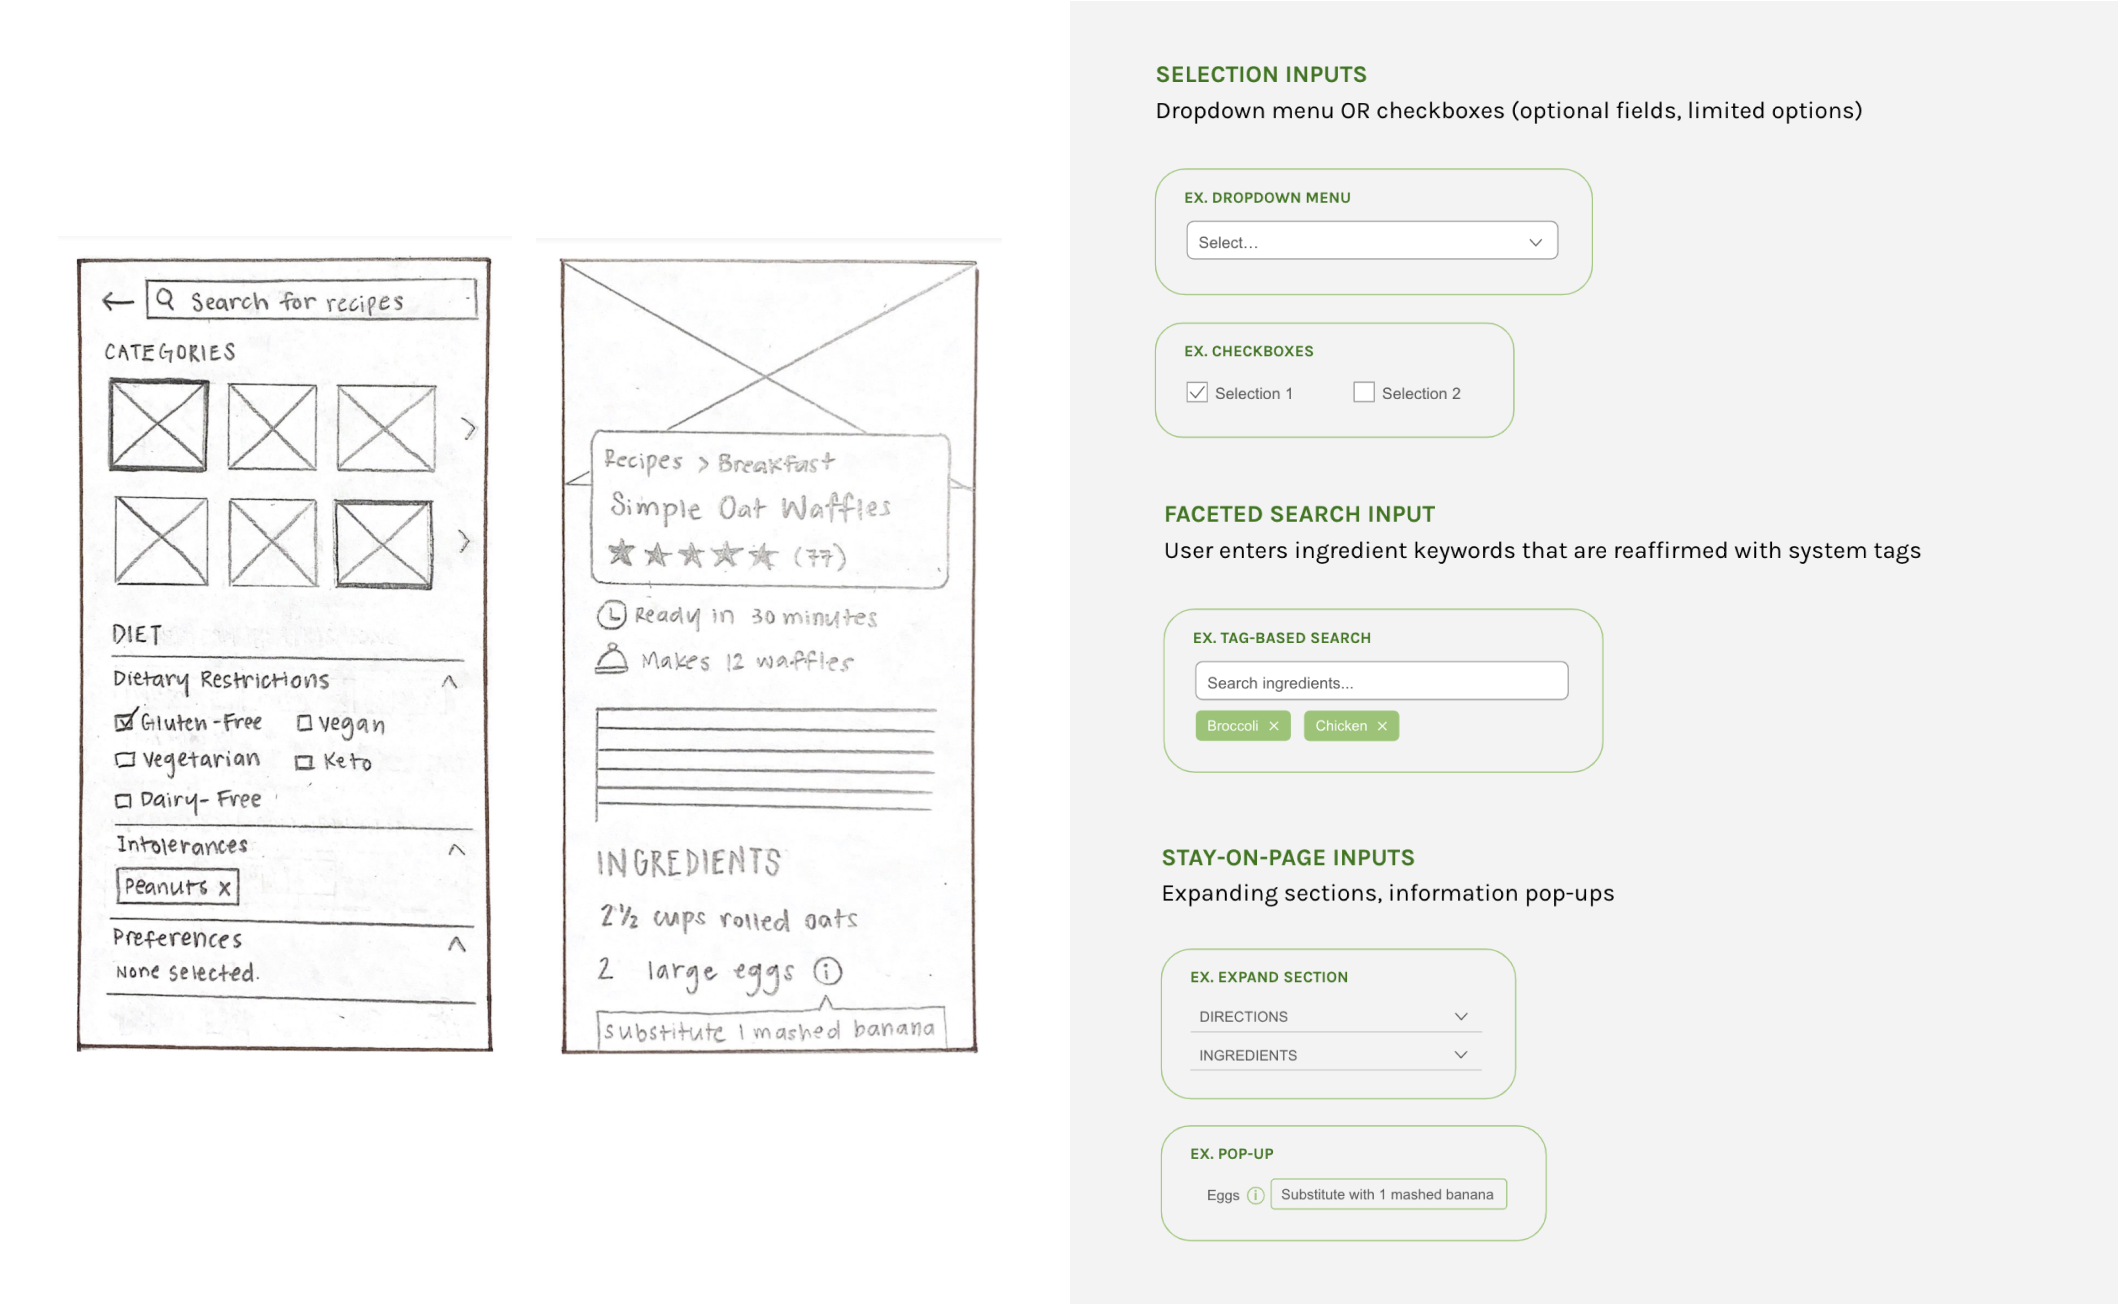 Search for recipes
CATEGORIES
DIET
Dietary Restrictions
Gluten-Free
vegan
Vegetarian
Keto
Dairy-Free
Intolerances
Peanuts x
Preferences
None selected.
Recipes > Breakfast
Simple Oat Waffles
(77)
Ready in 30 minutes
Makes 12 waffles
INGREDIENTS
2½ cups rolled oats
2 large eggs i
substitute 1 mashed banana
SELECTION INPUTS
Dropdown menu OR checkboxes (optional fields, limited options)
EX. DROPDOWN MENU
Select...
EX. CHECKBOXES
Selection 1
Selection 2
FACETED SEARCH INPUT
User enters ingredient keywords that are reaffirmed with system tags
EX. TAG-BASED SEARCH
Search ingredients...
Broccoli ×
Chicken ×
STAY-ON-PAGE INPUTS
Expanding sections, information pop-ups
EX. EXPAND SECTION
DIRECTIONS
INGREDIENTS
EX. POP-UP
Eggs i Substitute with 1 mashed banana